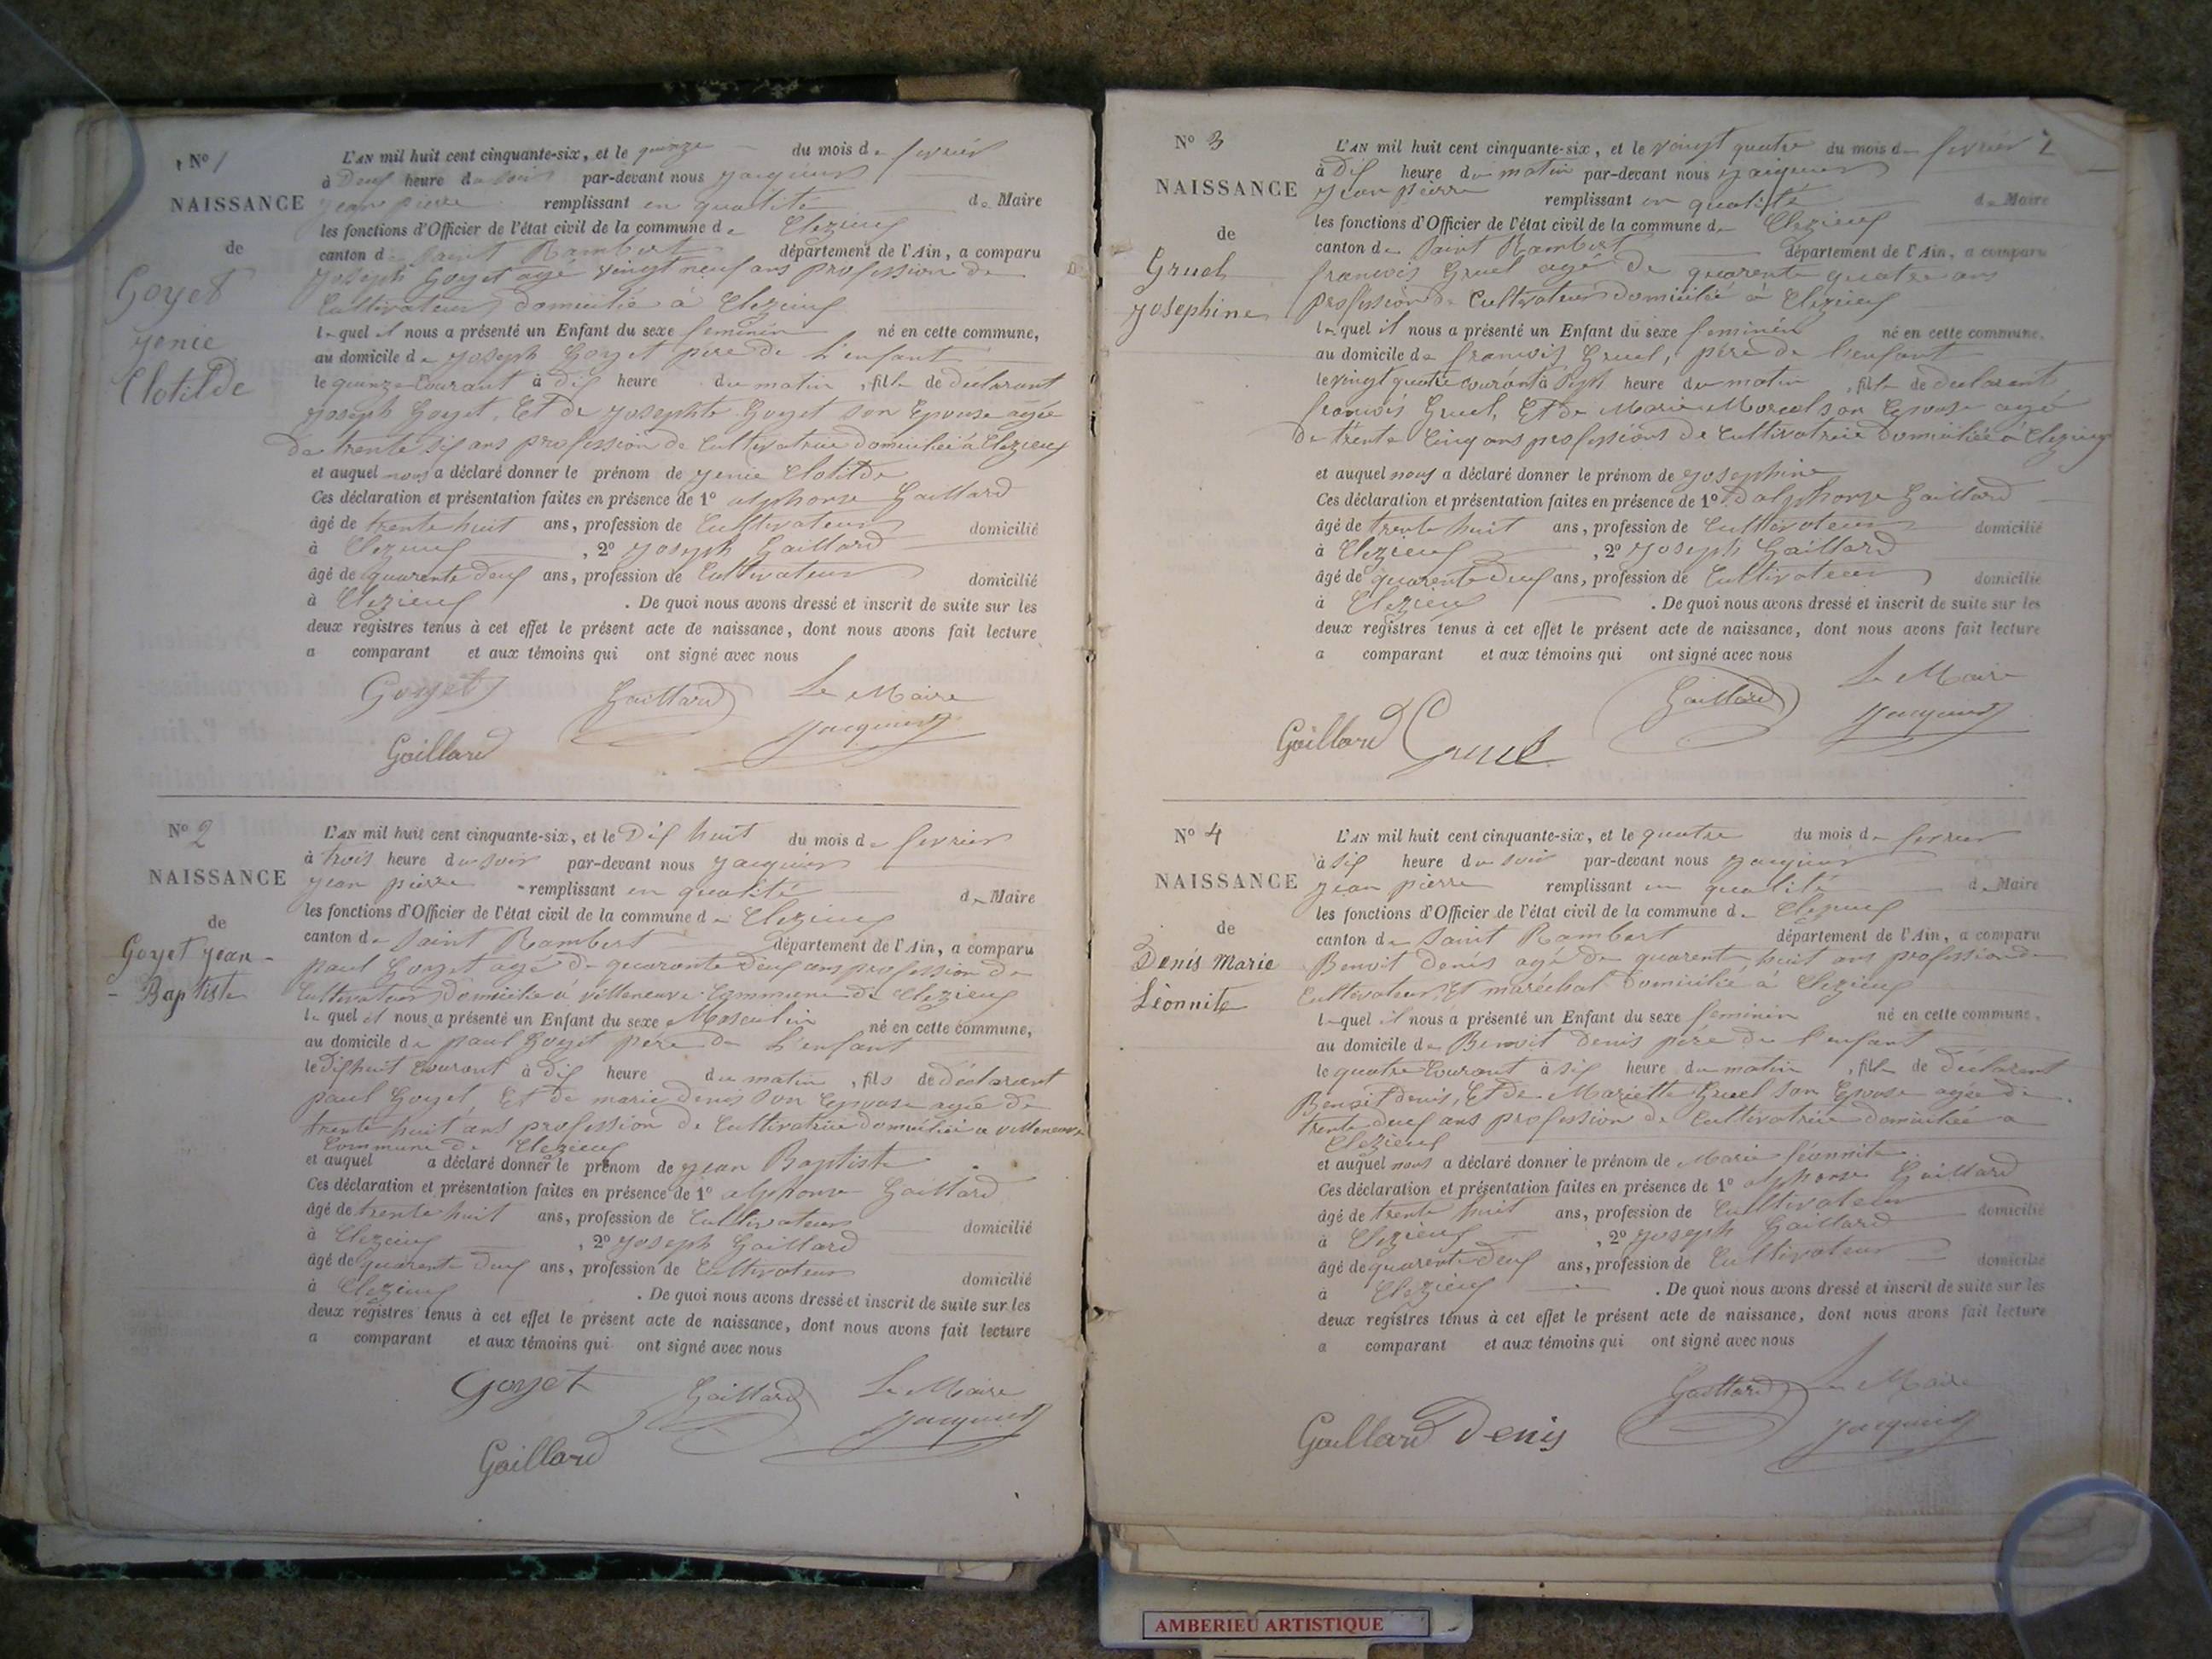 No 1
NAISSANCE
de
Goyet
Jenie
Clotilde
L'AN mil huit cent cinquante-six, et le quinze du mois de fevrier
à Deux heure du soir par-devant nous Jacquier
jean pierre remplissant en qualité de Maire
les fonctions d'Officier de l'état civil de la commune de Clezieux
canton de Saint Rambert département de l'Ain, a comparu
Joseph Goyet agé vingt neuf ans profession de
Cultivateur domicilié à Clezieux
lequel il nous a présenté un Enfant du sexe feminin né en cette commune,
au domicile de Joseph Goyet père de l'enfant
le quinze Courant à dix heure du matin, fille de déclarant
Joseph Goyet, Et de Josephte Goyet son Epouse agée
De trente six ans profession de Cultivatrice domiciliée à Clezieux
et auquel nous a déclaré donner le prénom de Jenie Clotilde
Ces déclaration et présentation faites en présence de 1º alphonse Gaillard
âgé de trente huit ans, profession de Cultivateur domicilié
à Clezieux, 2º Joseph Gaillard
âgé de quarente deux ans, profession de Cultivateur domicilié
à Clezieux. De quoi nous avons dressé et inscrit de suite sur les
deux registres tenus à cet effet le présent acte de naissance, dont nous avons fait lecture
a comparant et aux témoins qui ont signé avec nous
Goyet Gaillard Le Maire
Gaillard Jacquier
No 2
NAISSANCE
de
Goyet Jean-
-Baptiste
L'AN mil huit cent cinquante-six, et le Dix huit du mois de fevrier
à trois heure du soir par-devant nous Jacquier
jean pierre remplissant en qualité de Maire
les fonctions d'Officier de l'état civil de la commune de Clezieux
canton de Saint Rambert département de l'Ain, a comparu
paul Goyet agé de quarante deux ans profession de
Cultivateur domicilié à villeneuve Commune de Clezieux
lequel il nous a présenté un Enfant du sexe Masculin né en cette commune,
au domicile de paul Goyet père de l'enfant
le dix huit Courant à dix heure du matin, fils de déclarant
paul Goyet Et de marie denis son Epouse agée de
trente huit ans profession de Cultivatrice domiciliée a villeneuve
Commune de Clezieux
et auquel a déclaré donner le prénom de Jean Baptiste
Ces déclaration et présentation faites en présence de 1º alphonse Gaillard
âgé de trente huit ans, profession de Cultivateur domicilié
à Clezieux, 2º Joseph Gaillard
âgé de quarente deux ans, profession de Cultivateur domicilié
à Clezieux. De quoi nous avons dressé et inscrit de suite sur les
deux registres tenus à cet effet le présent acte de naissance, dont nous avons fait lecture
a comparant et aux témoins qui ont signé avec nous
Goyet Gaillard Le Maire
Gaillard Jacquier
2
No 3
NAISSANCE
de
Gruel
Josephine
L'AN mil huit cent cinquante-six, et le vaingt quatre du mois de fevrier
à Dix heure du matin par-devant nous Jacquier
jean pierre remplissant en qualité de Maire
les fonctions d'Officier de l'état civil de la commune de Clezieux
canton de Saint Rambert département de l'Ain, a comparu
francois Gruel agé de quarente quatre ans
profession de Cultivateur domicilié à Clezieux
lequel il nous a présenté un Enfant du sexe feminin né en cette commune,
au domicile de francois Gruel, père de l'enfant
le vingt quatre courant à sept heure du matin, fille de declarent
francois Gruel, Et de Marie Morcel son Epouse agé
De trente Cinq ans professions de Cultivatrice domiciliée à Clezieux
et auquel nous a déclaré donner le prénom de Josephine
Ces déclaration et présentation faites en présence de 1º D'alphonse Gaillard
âgé de trente huit ans, profession de Cultivateur domicilié
à Clezieux, 2º Joseph Gaillard
âgé de quarente deux ans, profession de Cultivateur domicilié
à Clezieux. De quoi nous avons dressé et inscrit de suite sur les
deux registres tenus à cet effet le présent acte de naissance, dont nous avons fait lecture
a comparant et aux témoins qui ont signé avec nous
Gaillard Le Maire
Gaillard Gruel Jacquier
No 4
NAISSANCE
de
Denis Marie
Léonnite
L'AN mil huit cent cinquante-six, et le quatre du mois de fevrier
à six heure du soir par-devant nous Jacquier
jean pierre remplissant en qualité de Maire
les fonctions d'Officier de l'état civil de la commune de Clezieux
canton de Saint Rambert département de l'Ain, a comparu
Benoit denis agé de quarent huit ans profession de
Cultivateur Et maréchal Domicilié à Clezieux
lequel il nous a présenté un Enfant du sexe feminin né en cette commune,
au domicile de Benoit Denis père de l'enfant
le quatre Courant à six heure du matin, fille de déclarent
Benoit denis, Et de Mariette Gruel son Epouse agée de
trente deux ans profession de Cultivatrice domiciliée a
Clezieux
et auquel nous a déclaré donner le prénom de Marie léonnite
Ces déclaration et présentation faites en présence de 1º alphonse Gaillard
âgé de trente huit ans, profession de Cultivateur domicilié
à Clezieux, 2º Joseph Gaillard
âgé de quarente deux ans, profession de Cultivateur domicilié
à Clezieux. De quoi nous avons dressé et inscrit de suite sur les
deux registres tenus à cet effet le présent acte de naissance, dont nous avons fait lecture
a comparant et aux témoins qui ont signé avec nous
Gaillard Le Maire
Gaillard Denis Jacquier
AMBERIEU ARTISTIQUE